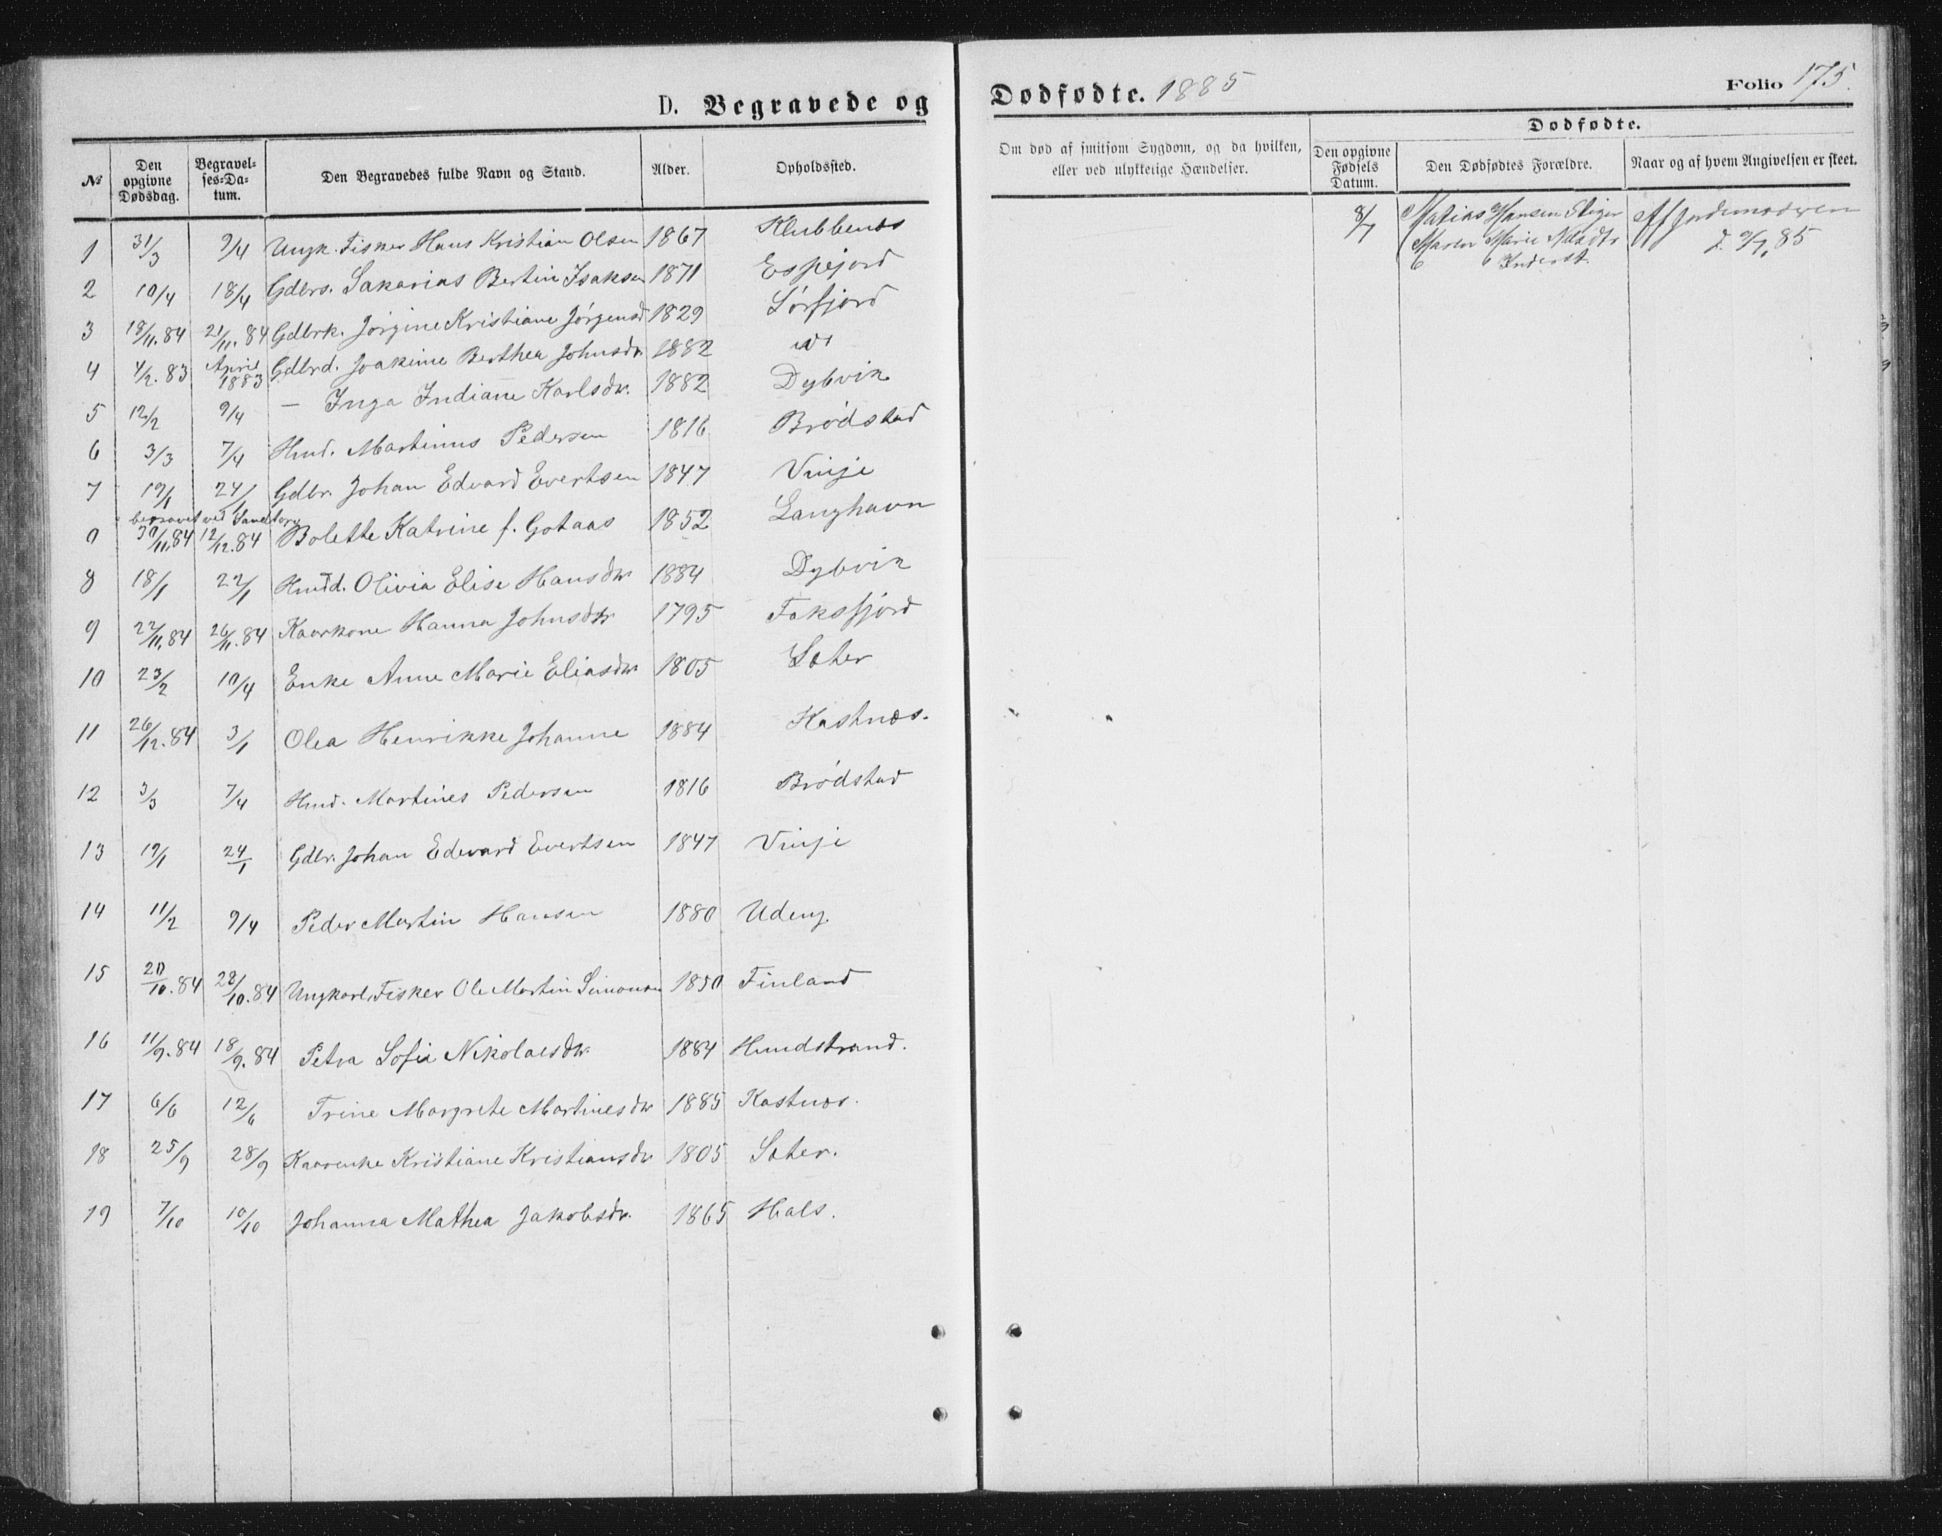 D. Begravede og
Dødfødte. 1885
Folio 175.
№
Den opgivne Dødsdag.
Begravelses-Datum.
Den Begravedes fulde Navn og Stand.
Alder.
Opholdssted.
Om død af smitsom Sygdom, og da hvilken, eller ved ulykkelige Hændelser.
Dødfødte.
Den opgivne Fødsels Datum.
Den Dødfødtes Forældre.
Naar og af hvem Angivelsen er skeet.
1 31/3 9/4 Ungk. Fisker Hans Kristian Olsen 1867 Klubbenes
2 10/4 18/4 Gdbrs. Sakarias Bertin Isaksen 1871 Espejord
3 18/11.84 21/11.84 Gdbrk. Jørgine Kristiane Jørgensd 1829 Sørfjord
4 4/2.83 April 1883 Gdbrd. Joakime Berthea Johnsdr 1882
5 12/2 9/4 — Inga Indiane Karlsdr. 1882 Dybvik
6 3/3 7/4 Hmd. Martinus Pedersen 1816 Brødstad
7 19/1 24/1 Gdbr. Johan Edvard Evertsen 1847 Vinje
begravet ved
0 30/11.84 12/12.84 Bolette Katrine f. Gotaas 1852 Langhavn
8 18/1 22/1 Hmd. Olivia Elise Hansdr 1884 Dybvik
9 22/11.84 26/11.84 Kaarkone Hanna Johnsdtr 1795 Faksfjord
10 23/2 10/4 Enke Anne Marie Eliasdr 1805 Sæter
11 26/12.84 3/1 Olea Henrikke Johanne 1884 Kastnæs.
12 3/3 7/4 Hmd. Martines Pedersen 1816 Brødstad
13 19/1 24/1 Gdbr. Johan Edevard Evertsen 1847 Vinje
14 11/2 9/4 Peder Martin Hansen 1880 Udeng.
15 20/10.84 28/10.84 Ungkarl. Fisker Ole Martin Simonsen 1850 Finland
16 11/9.84 18/9.84 Petra Sofie Nikolaisdr. 1884 Hundstrand.
17 6/6 12/6 Trine Margrete Martinesdr 1885 Kastnæs.
18 25/9 28/9 Kaarenke Kristiane Kristiansdr 1805 Sæter.
19 7/10 10/10 Johanna Mathea Jakobsdr. 1865 Hals.
8/7 Matias Hansen
Maren Marie
Af Jordemoderen
85